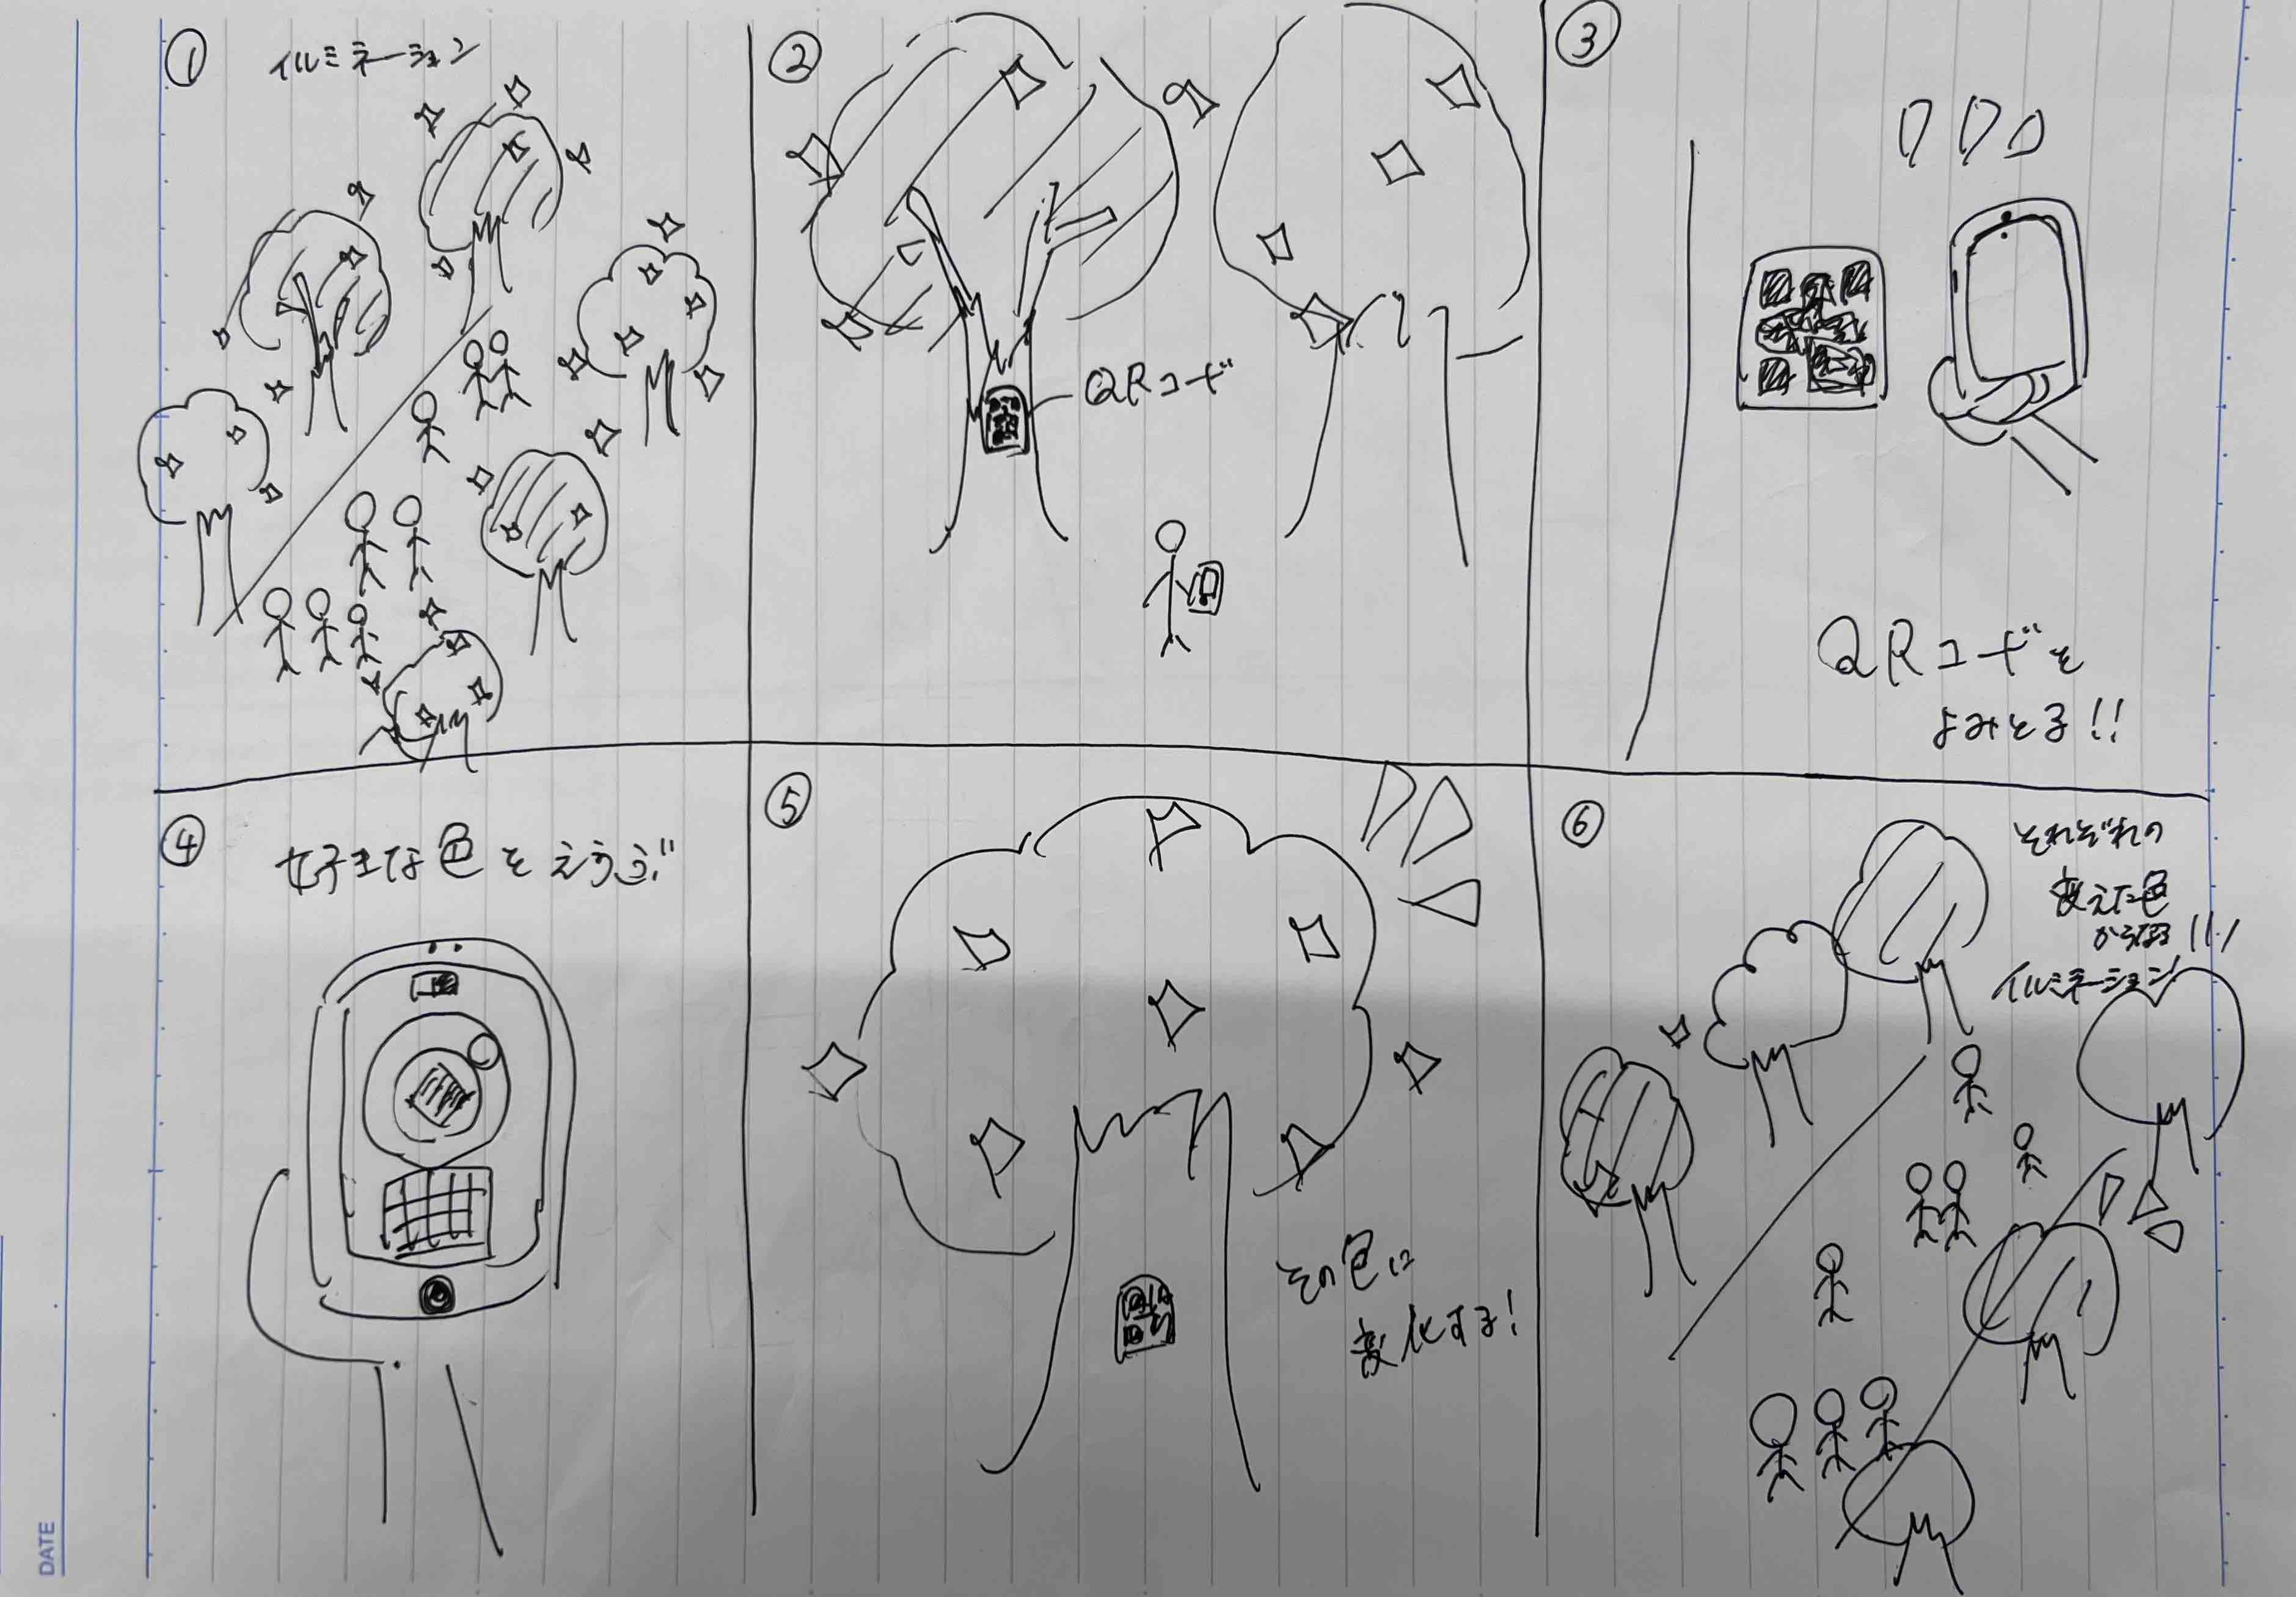 ①
イルミネーション
②
QRコード
③
QRコードを
よみとる!!
④
好きな色をえらぶ
⑤
その色に
変化する!
⑥
それぞれの
変えた色
から
イルミネーション
DATE